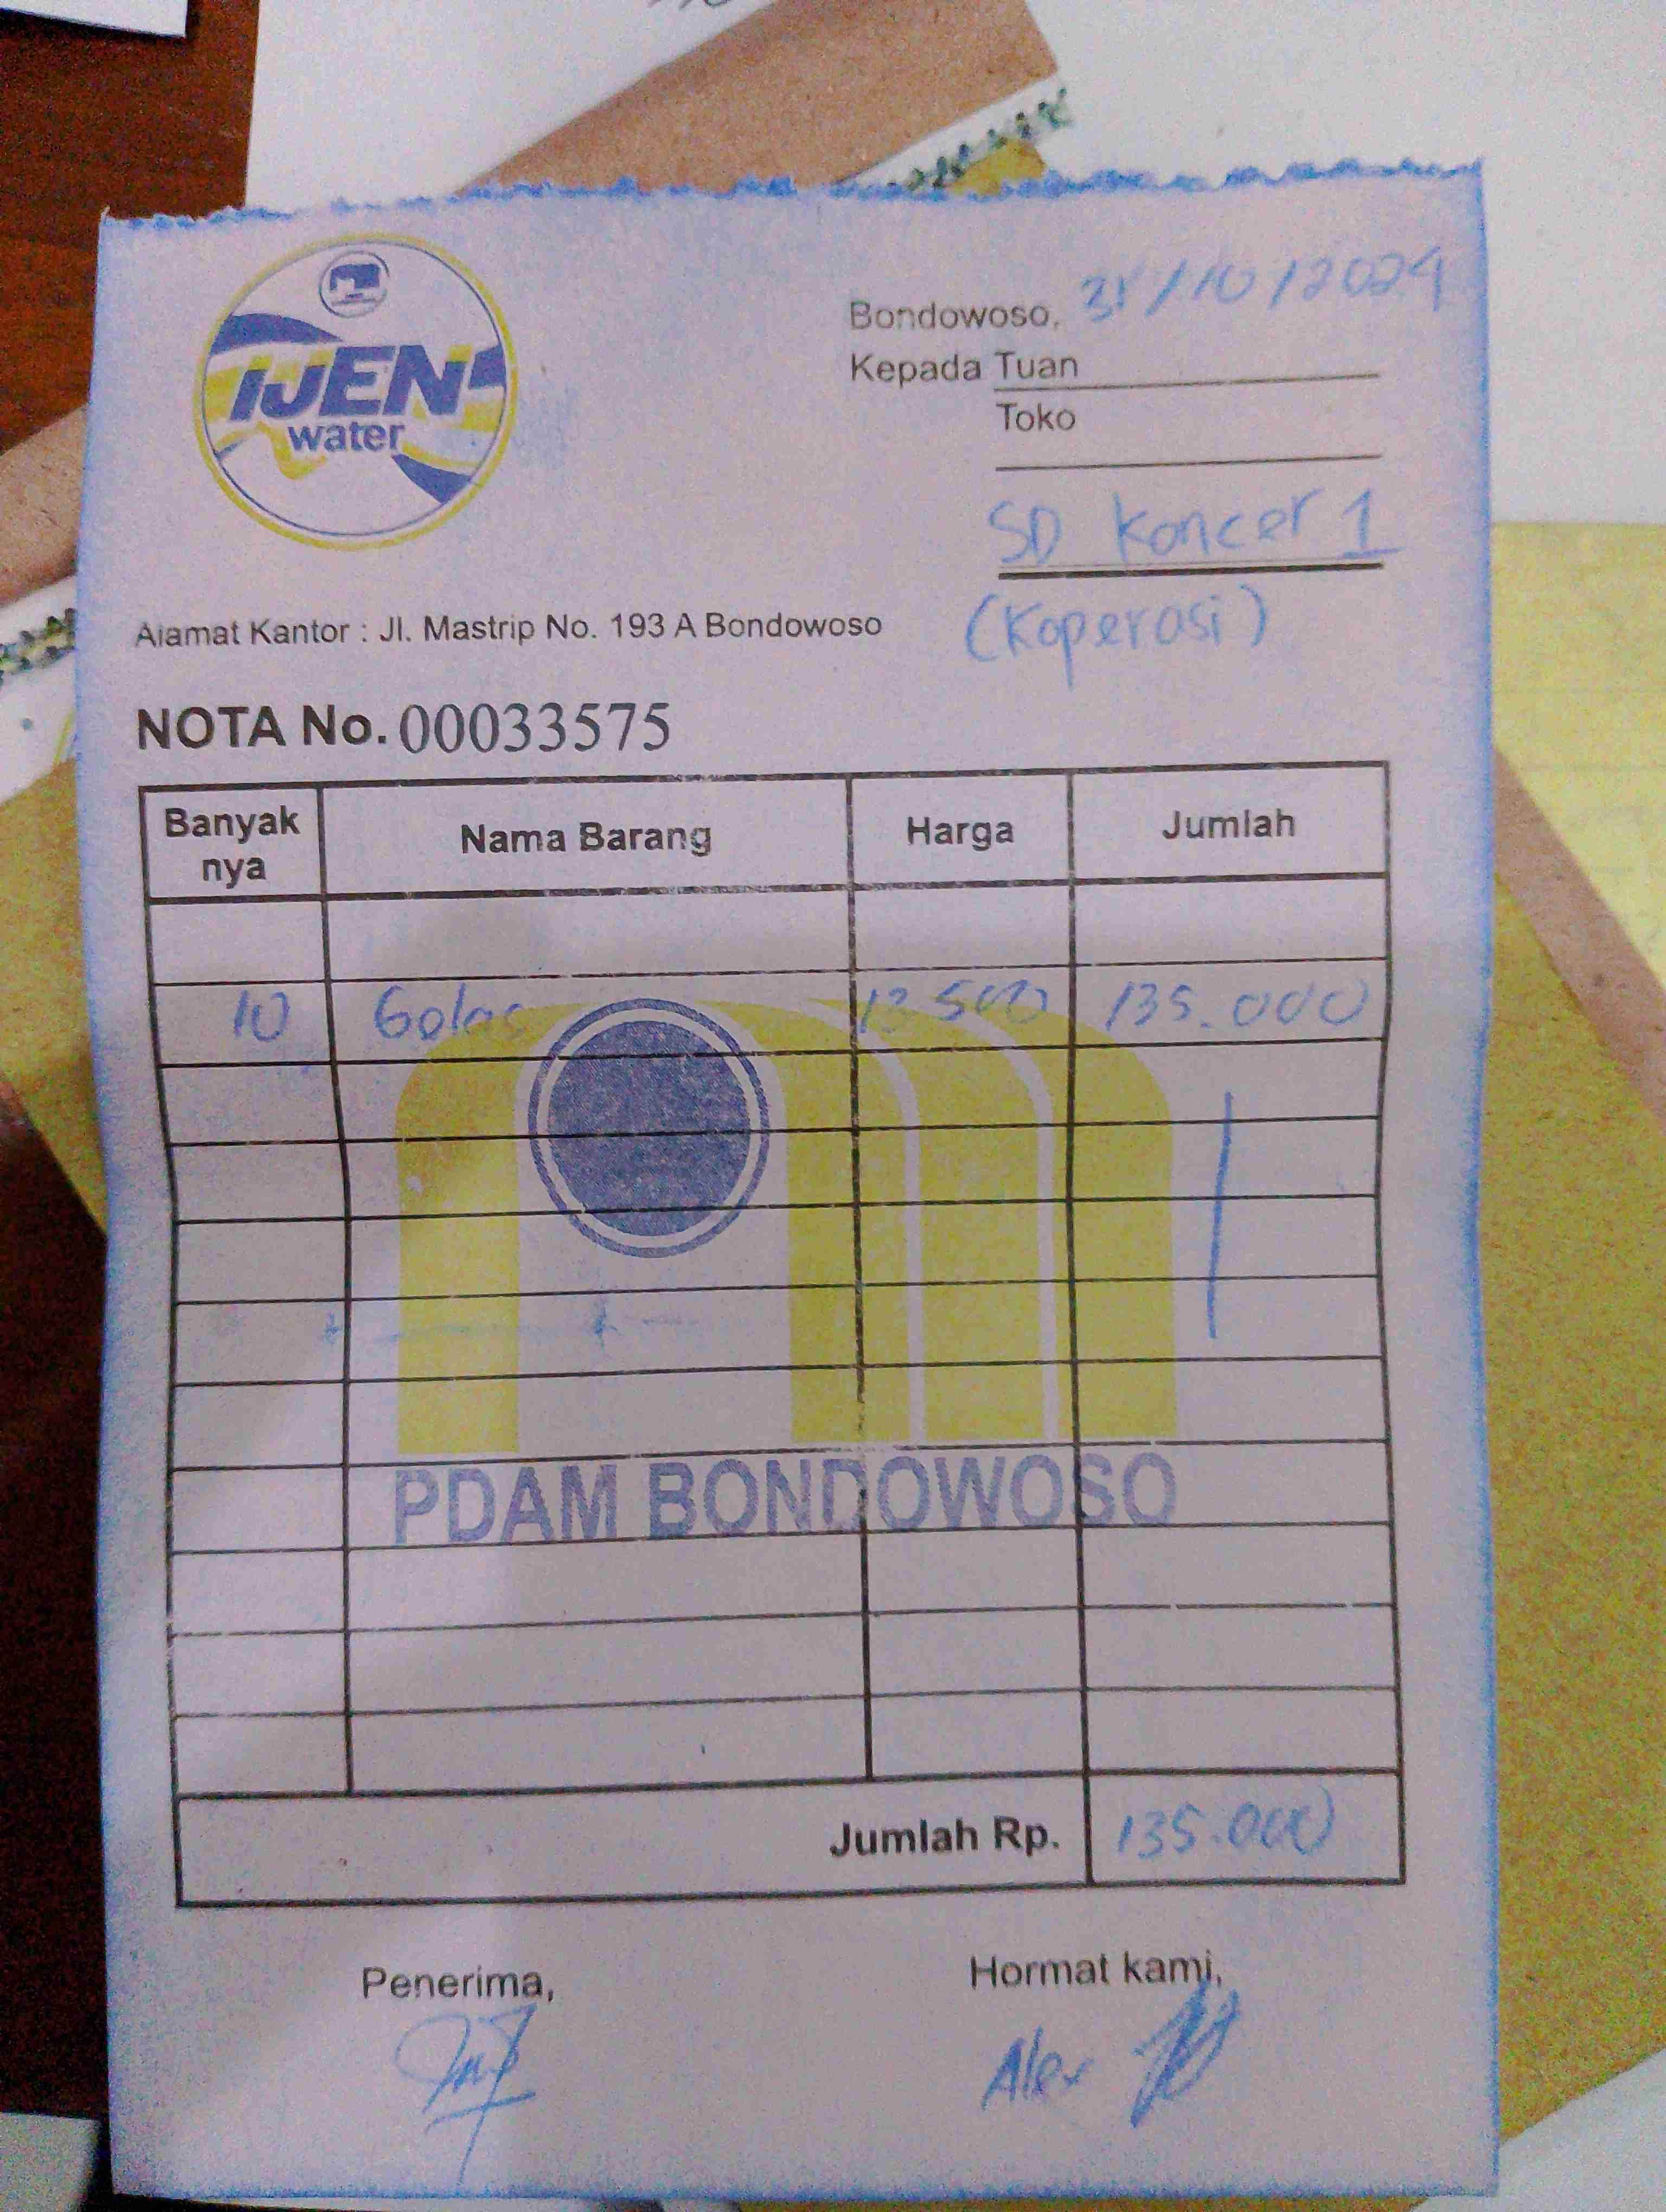 IJEN
water
Bondowoso, 31/10/2024
Kepada Tuan
Toko
SD Koncer 1
(Koperasi)
Alamat Kantor : Jl. Mastrip No. 193 A Bondowoso
NOTA No. 00033575
Banyak nya Nama Barang Harga Jumlah
10 Gelas 13.500 135.000
PDAM BONDOWOSO
Jumlah Rp. 135.000
Penerima, Hormat kami,
Alex